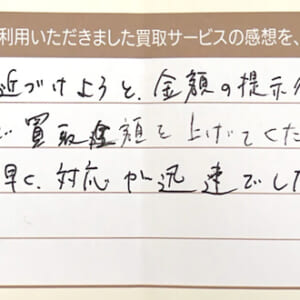 利用いただきました買取サービスの感想を、
近づけようと、金額の提示
買取金額を上げてくだ
早く、対応が迅速でした